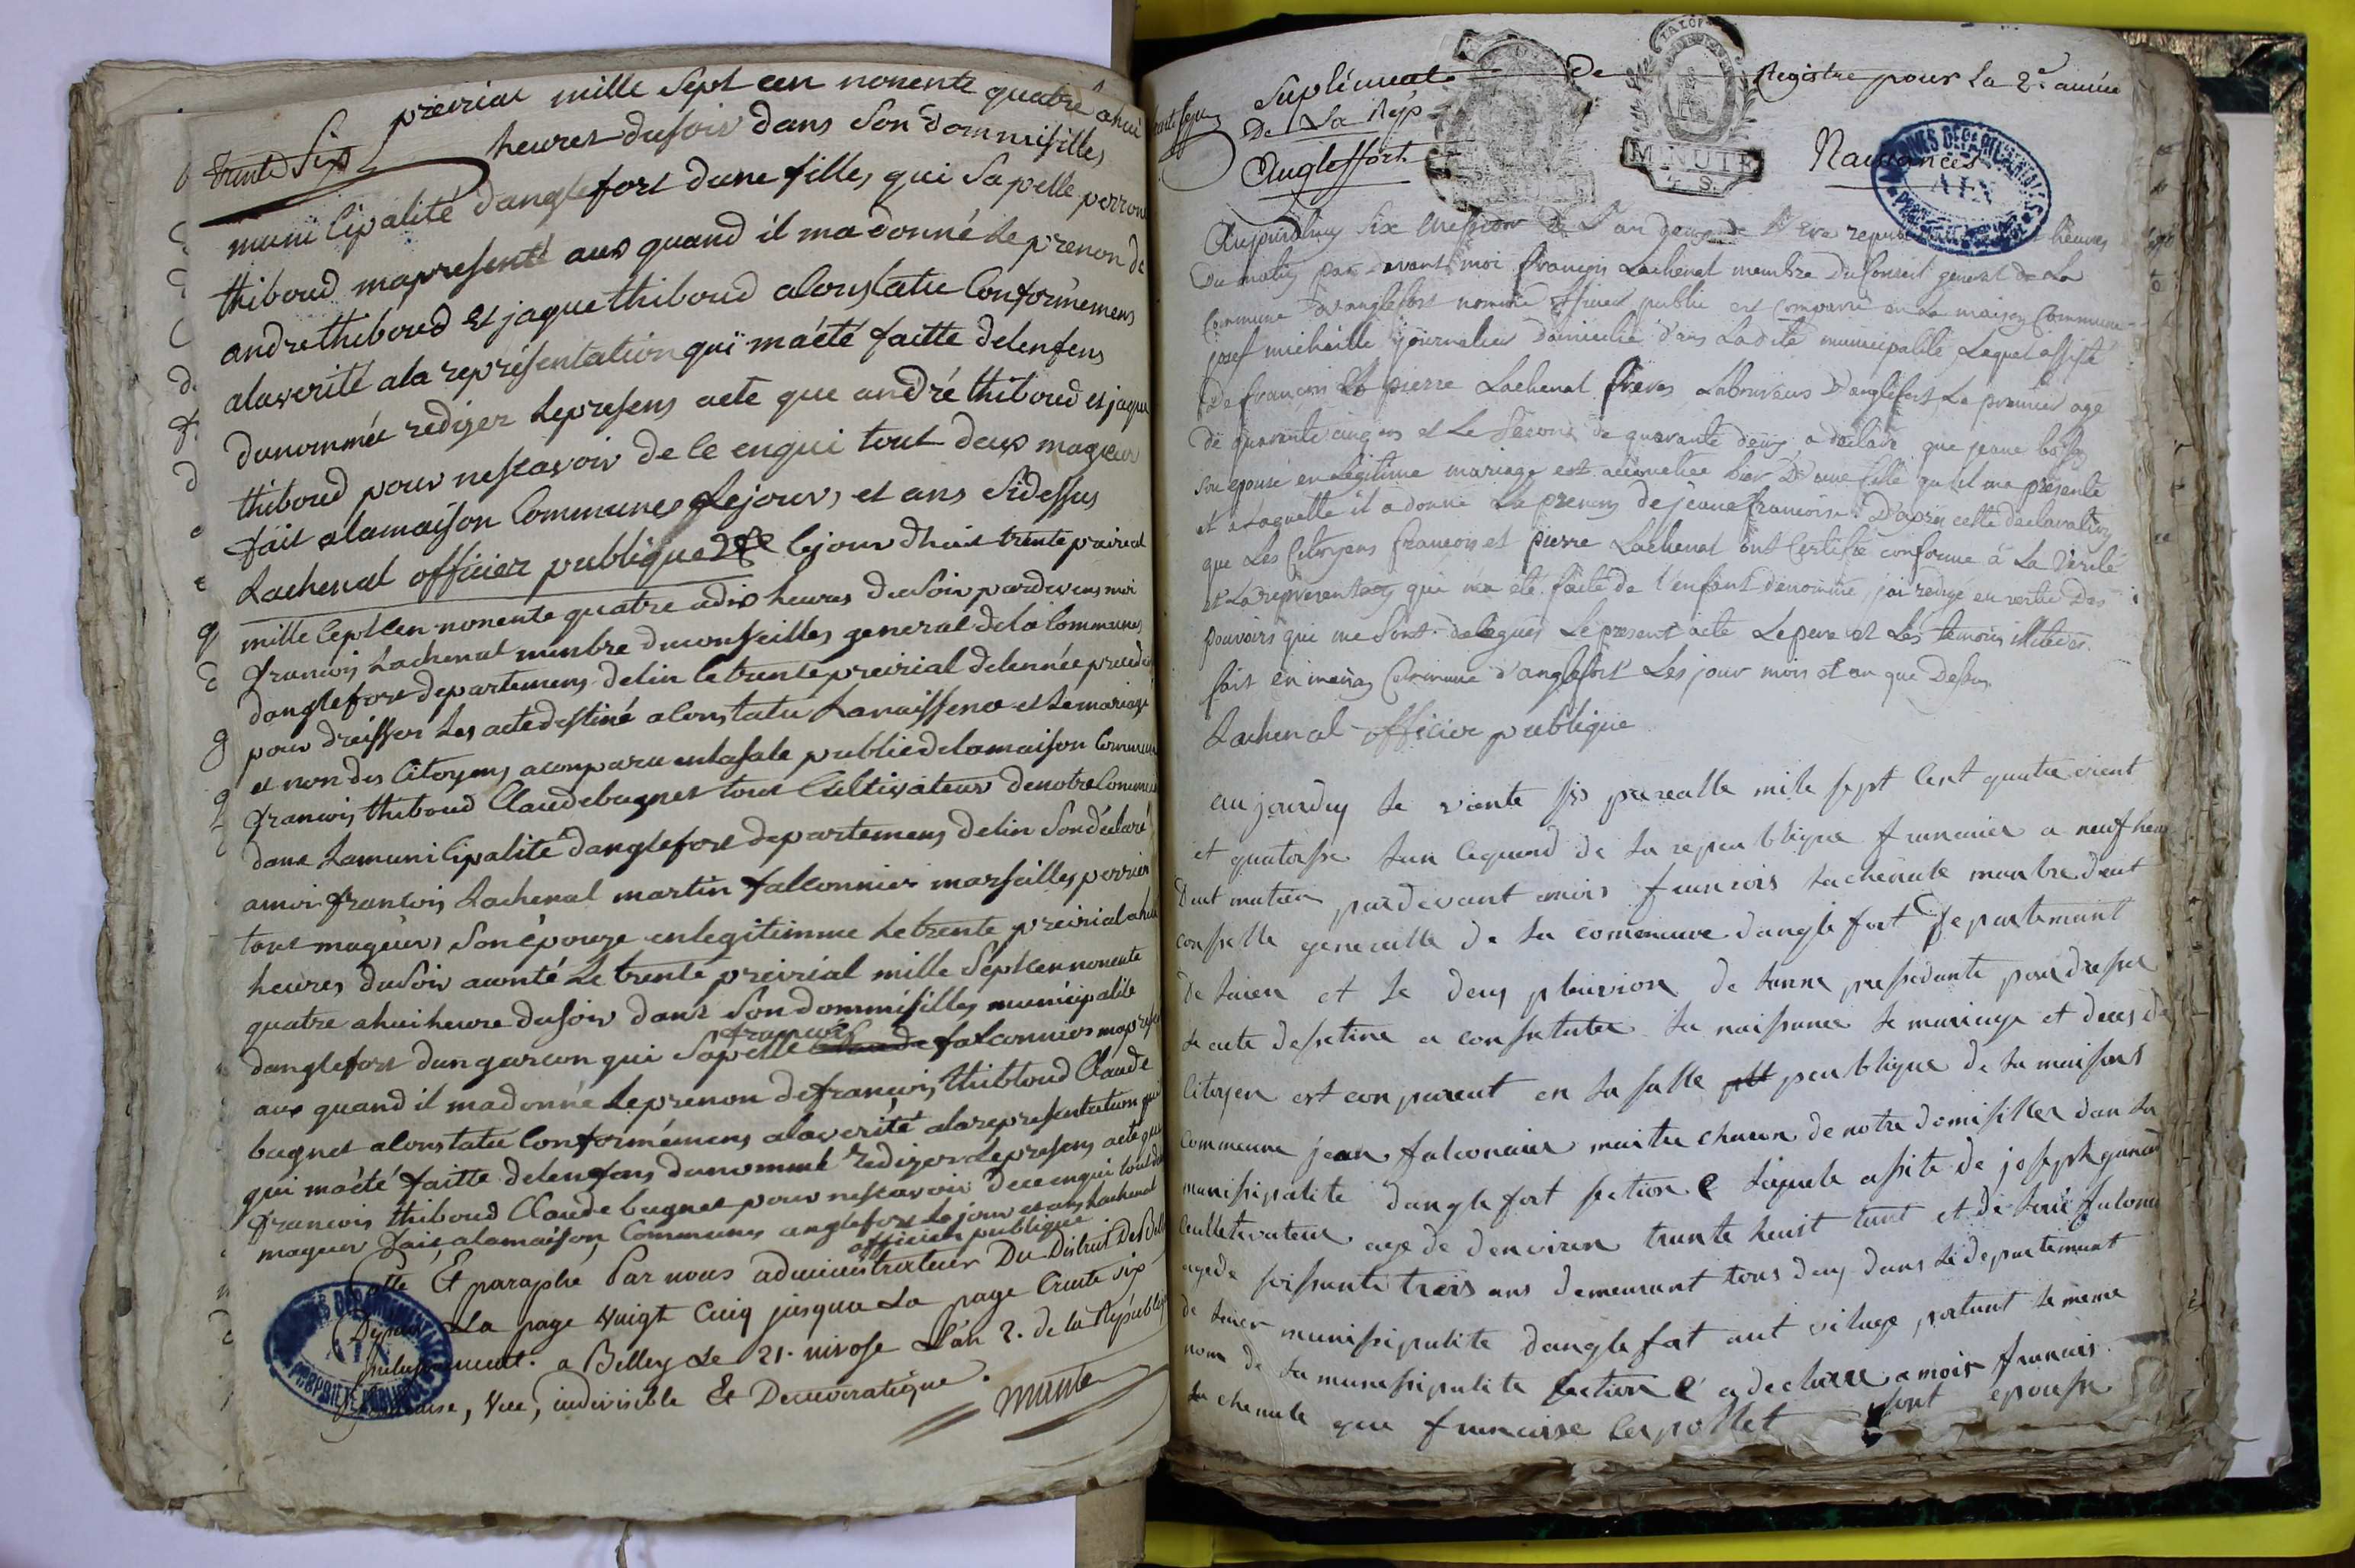 preirial mille Sept cen nonente quatre ahui
trente Six
heures dusoir dans Son dommisilles
municipalité danglefort dune fille, qui Sapelle perrone
thiboud mapresenté aux quand il ma donné Le prenon de
andre thiboud Et jaque thiboud alonstatu Conformemens
alaverité ala représentation qui maété faitte delenfens
dunommée rediger Lepresens acte que andré thiboud et jaque
thiboud pour nescavoir de Ce enqui tout deux mageur
fait alamaison Communes Lejour, et ans Sidessus
Lachenal officier publique Le jour dhui trente pairial
mille Sept Cen nonente quatre adix heures dusoir pardevens moi
francois Lachenal menbre duconseilles general dela Communes
danglefort departemens delin le trente preirial delennée preced
pour dreisser Les acte destiné alonstatu Lanaissence et Lemariage
et mon des Citoyens aconparu enlasale publie delamaison Commune
francois thiboud Claude bagnet tout Cultivateur denotre Commune
dans Lamunicipalité danglefort departemens delin Son déclaré
amoi francois Lachenal martin falconnier marseilles perrier
tout mageurs Son épouze enlegitimme Le trente preirial ahui
heures dusoir aconté Le trente preirial mille Sept cen nonente
quatre ahui heure dusoir dans Son dommisilles municipalité
francois
danglefort dun garcon qui Sapelle falconnier mapresen
aux quand il madonné Leprenon defrancois thibloud Claude
bagnet alonstatu Conformémens alaverité alarepresentation
qui maété faitte delenfans dunommé Rediger Lepresens acte que
francois thiboud Claude bagnet pour nescavoir dece enqui tout deux
mageur fait alamaison Communes anglefort Lejour et ans Lachenal
officier publique
Cotté Et paraphé Par nous administrateur Du District De Belley
Depuis La page Vuigt Cinq jusqua La page trente six
inclusivement. a Belley Le 21. nivose L'an 2. de la République
francaise, Vne, indivisible Et Democratique.
Suplément De Registre pour La 2e année
De La Rép
Anglefort. Naissances
MINUTE
4 S.
Aujourdhuy Six Messidor de L'an deux de L'Ere republicaine heures
Du matin par Devant moi francois Lachenal membre Du Conseil general de La
Commune d'anglefort nommé officier public est comparu en La maison Commune
josef michaille journalier Domicilié dans Ladite municipalité, Lequel assisté
De francois Et pierre Lachenal freres Laboureurs D'anglefort Le premier agé
de quarante cinq ans et Le Second de quarante deux, a déclaré que jeane
Son epouse en Légitime mariage est accouchée hier D'une fille qu'il me présente
et a Laquelle il a donné Le prenom de jeane francoise. D'apres cette déclaration
que Les Citoyens francois et pierre Lachenal ont Certifié conforme à La Vérité
et La représentation qui m'a été faite de l'enfant dénommé, j'ai redigé en vertu Des
pouvoirs qui me Sont délégués Le present acte Le pere et Les temoins illiteres.
fait en maison Commune d'anglefort Les jour mois et an que Dessus
Lachenal officier publique
aujourduy Le viente six perealle mile sept Cent quatre vient
et quatorse Lan cegond de La republique francaier a neuf heu
Deut matien pardevant mois francois Lachenale manbre deut
conselle generalle de La comeneuve danglefort Departemant
De Laien et Le deuy pluiviose de Lanne presedante pour dresser
Le acte destine a constater La naissance Le mariage et deces de
Citoyen est conparent en La salle peublique de La maisons
Commeune jean falconnier maitre charon de notre domisiller dan La
munisipalite danglefort section C Lequele assite de joseph
Cultivateur age de denviron trante huit tant et de Louis falconi
agede soissante trois ans demeurant tous deuy dans Le departemant
de Laien munisipalite danglefort aut vilage portant Le meme
nom de La munesipalite section C a declare a mois francois
La chenale que francoise Cerpollet sont epouse